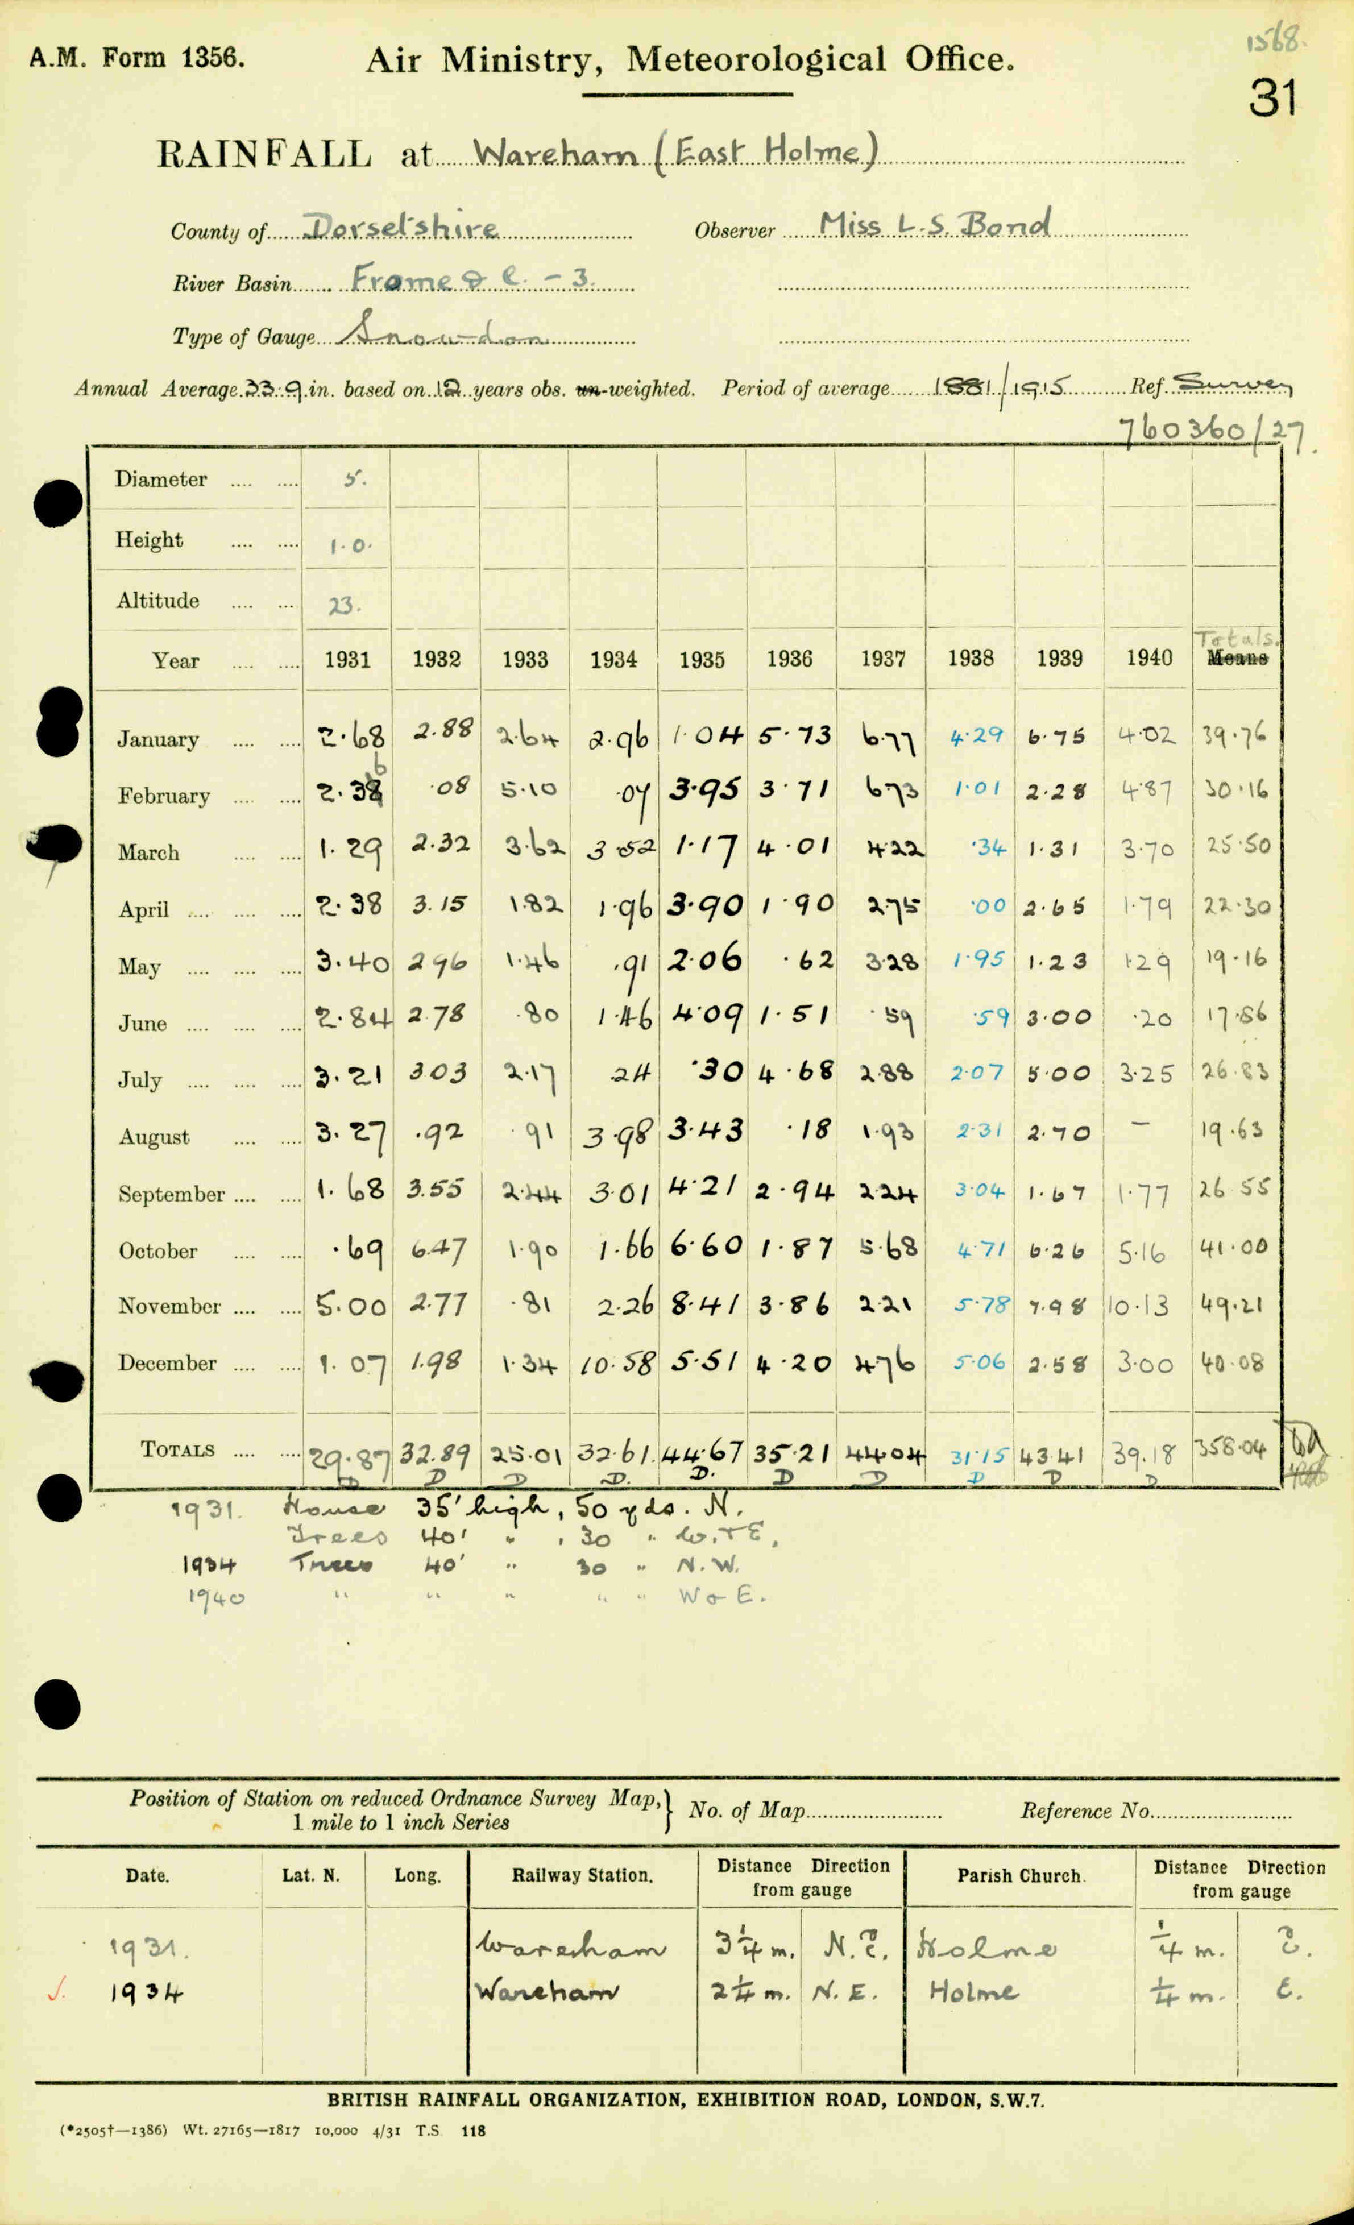 1568.
A.M. Form 1356. Air Ministry, Meteorological Office.
31
RAINFALL at Wareham (East Holme)
County of Dorsetshire Observer Miss L.S. Bond
River Basin Frome & C. - 3.
Type of Gauge Snowdon
Annual Average 33.9 in. based on 12 years obs. un-weighted. Period of average 1881/1915 Ref. Survey
760360/27.
Diameter .... .... 5.
Height .... .... 1.0.
Altitude .... .... 23.
Totals.
Year .... .... 1931 1932 1933 1934 1935 1936 1937 1938 1939 1940 Means
January .... .... 2.68 2.88 2.64 2.96 1.04 5.73 6.77 4.29 6.75 4.02 39.76
6
February .... .... 2.38 .08 5.10 .07 3.95 3.71 6.73 1.01 2.28 4.87 30.16
March .... .... 1.29 2.32 3.62 3.52 1.17 4.01 4.22 .34 1.31 3.70 25.50
April .... .... .... 2.38 3.15 1.82 1.96 3.90 1.90 2.75 .00 2.65 1.79 22.30
May .... .... .... 3.40 2.96 1.46 .91 2.06 .62 3.28 1.95 1.23 1.29 19.16
June .... .... .... 2.84 2.78 .80 1.46 4.09 1.51 .59 .59 3.00 .20 17.86
July .... .... .... 3.21 3.03 2.17 .24 .30 4.68 2.88 2.07 5.00 3.25 26.83
August .... .... 3.27 .92 .91 3.98 3.43 .18 1.93 2.31 2.70 - 19.63
September .... .... 1.68 3.55 2.44 3.01 4.21 2.94 2.24 3.04 1.67 1.77 26.55
October .... .... .69 6.47 1.90 1.66 6.60 1.87 5.68 4.71 6.26 5.16 41.00
November .... .... 5.00 2.77 .81 2.26 8.41 3.86 2.21 5.78 7.98 10.13 49.21
December .... .... 1.07 1.98 1.34 10.58 5.51 4.20 4.76 5.06 2.58 3.00 40.08
TOTALS .... .... 29.87 32.89 25.01 32.61 44.67 35.21 44.04 31.15 43.41 39.18 358.04
D D D D. D. D D D D D
1931. House 35' high, 50 yds. N.
Trees 40' " , 30 " W. + E.
1934 Trees 40' " 30 " N.W.
1940 " " " " " W & E.
Position of Station on reduced Ordnance Survey Map, 1 mile to 1 inch Series } No. of Map Reference No.
Date. Lat. N. Long. Railway Station. Distance Direction from gauge Parish Church. Distance Direction from gauge
1931. Wareham 3¼ m. N.E. Holme ¼ m. E.
1934 Wareham 2¼ m. N.E. Holme ¼ m. E.
BRITISH RAINFALL ORGANIZATION, EXHIBITION ROAD, LONDON, S.W.7.
(*2505†—1386) Wt. 27165—1817 10,000 4/31 T.S. 118